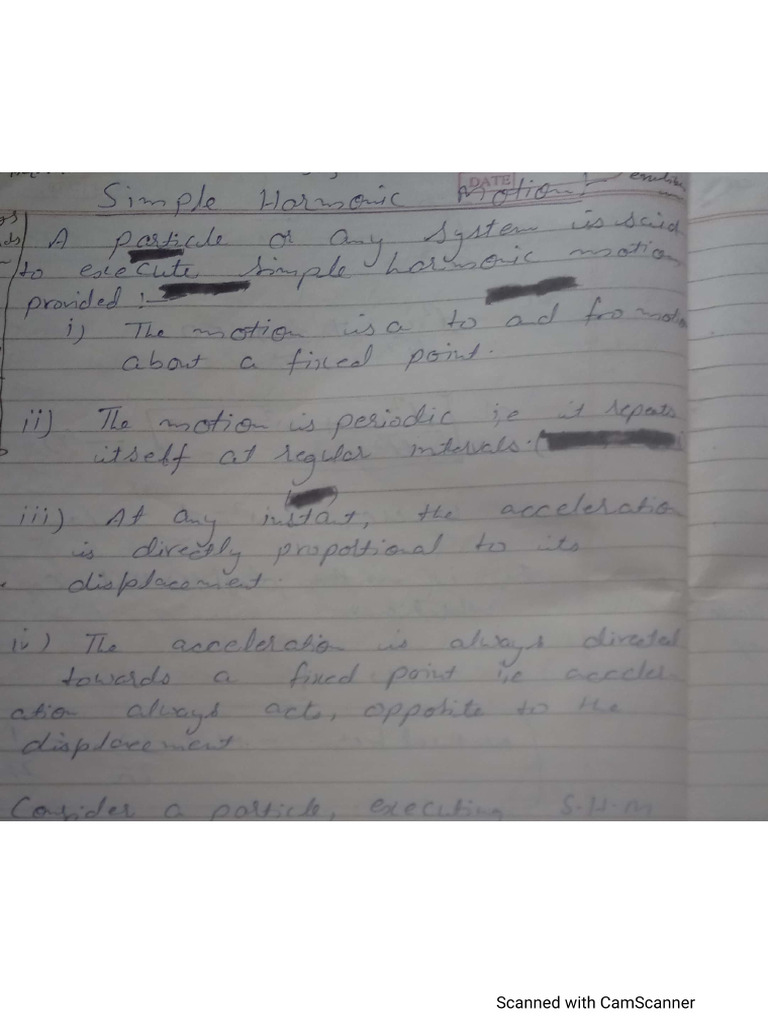 DATE
Simple Harmonic Motion:-
A particle or any system is said
to execute simple harmonic motion
provided :-
i) The motion is a to and fro motion
about a fixed point.
ii) The motion is periodic i,e it repeats
itself at regular intervals. (
iii) At any instant, the acceleration
is directly proportional to its
displacement.
iv) The acceleration is always directed
towards a fixed point i,e acceler
ation always acts, opposite to the
displacement
Consider a particle, executing S.H.M
Scanned with CamScanner